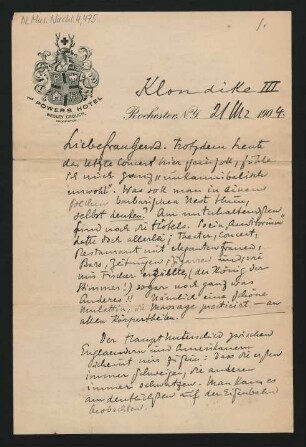 N. Mus. Nachl. 4, 475
1.
Klondike III
THE POWERS HOTEL
WESLEY CROUCH,
Rochester, N.Y. 21 Mz 1904.
Liebe Trotzdem heute
das letzte Concert hier fühle
ich mich ganz "unkannibalisch
unwohl". Was soll man in einem
solchen barbarischen Nest thun,
selbst denken? Am
sind noch die Hotels. "Auditorium"
hatte doch allerlei; Theater, Concert,
Restaurant mit eleganten Frauen,
Bars, Zeitungen, Cigarren und, wie
mir Fischer erzählte, (der König der
Stimmer!) sogar noch ganz was
Anderes!! Nämlich eine schöne
Mulattin, die Massage practiciert — an
allen Körpertheilen.
Der Hauptunterschied zwischen
Englaendern und Amerikanern
scheint mir zu sein: dass die ersten
immer schweigen, die anderen
immer schwatzen. Man kann es
am deutlichsten auf der Eisenbahn
beobachten.